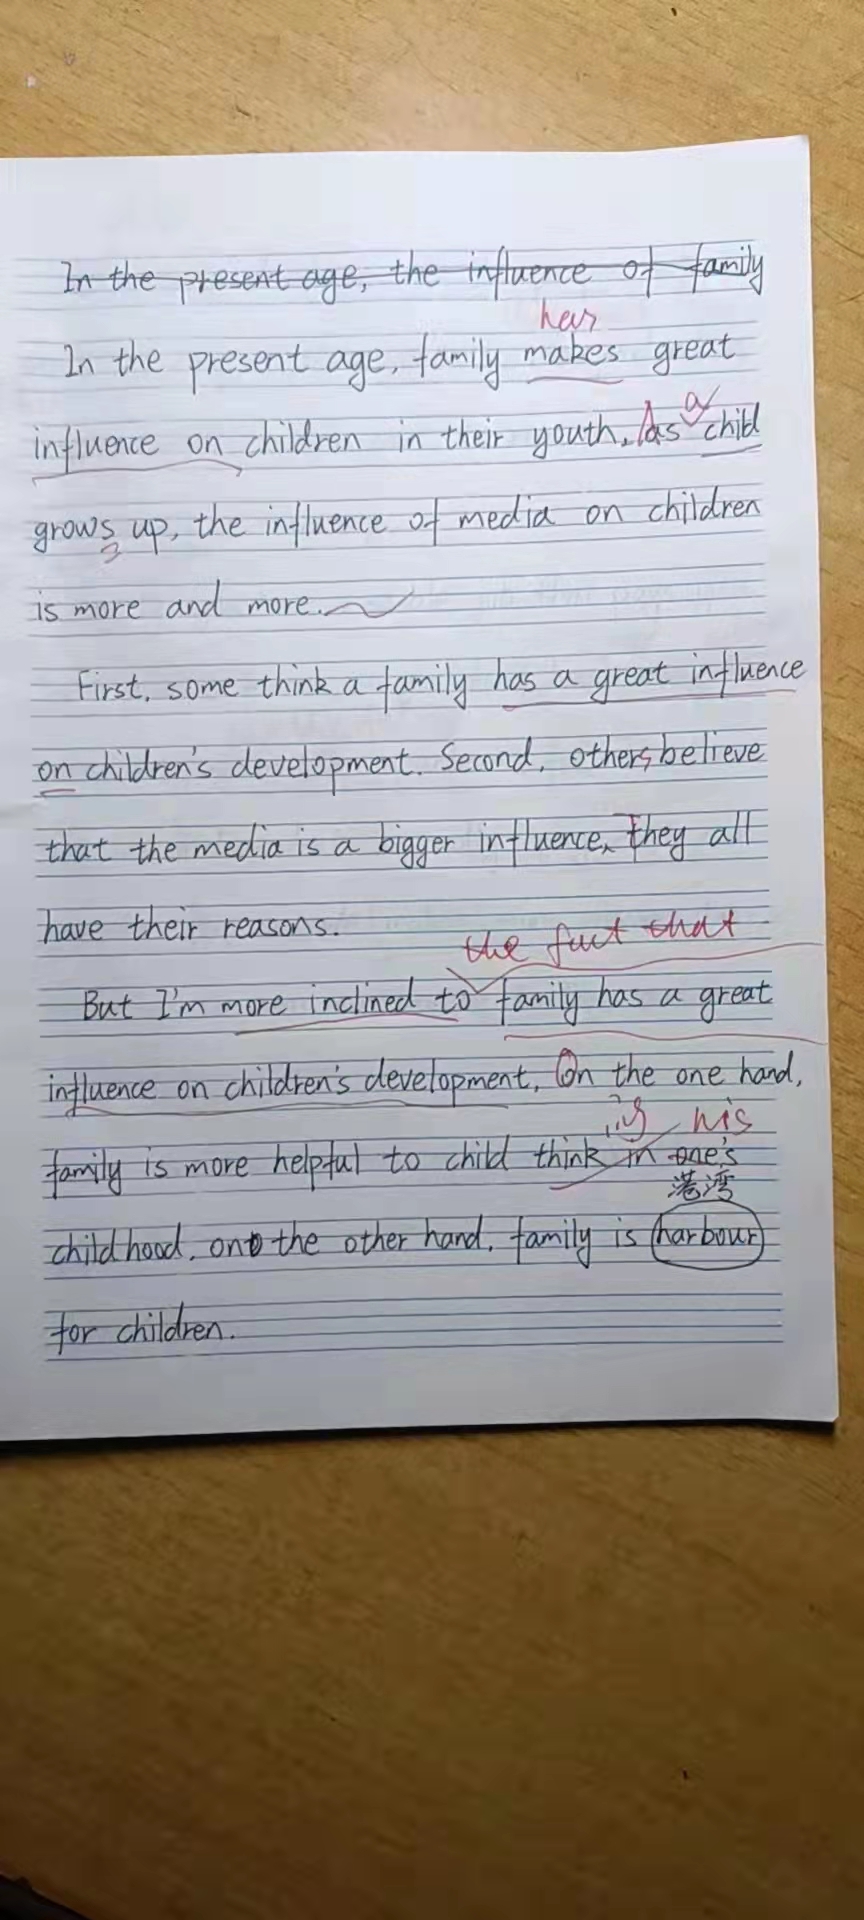 In the present age, the influence of family
has
In the present age, family makes great
a
influence on children in their youth. As child
grows up, the influence of media on children
is more and more.
First, some think a family has a great influence
on children's development. Second, others believe
that the media is a bigger influence, They all
have their reasons.
the fact that
But I'm more inclined to family has a great
influence on children's development, On the one hand,
his
family is more helpful to child think in one's
港湾
childhood, on the other hand, family is harbour
for children.